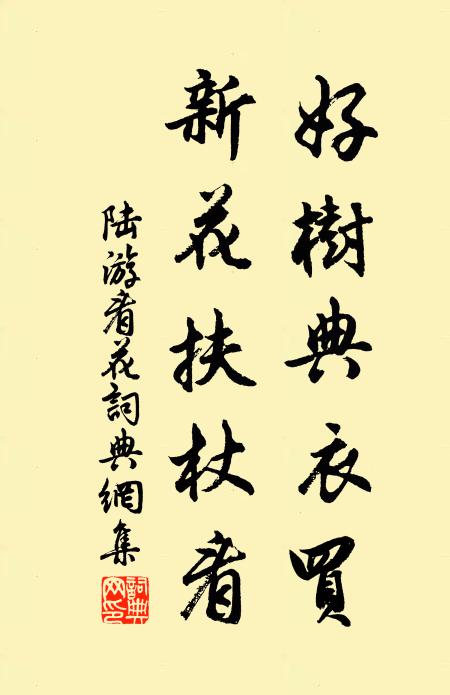 好樹典衣買
新花扶杖看
陆游看花詞典網集
詞典网印